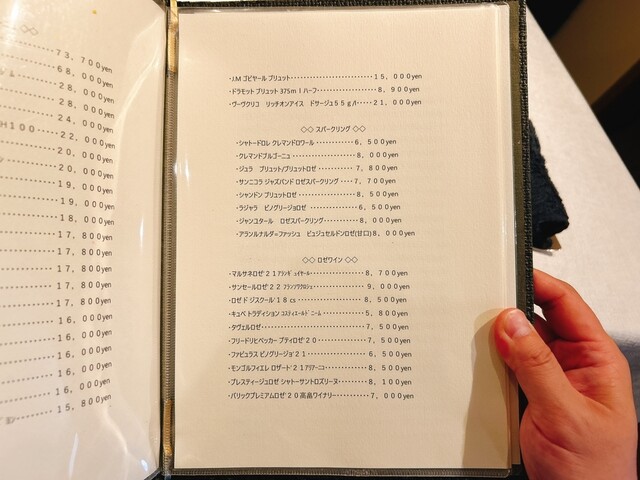 ◇◇
73,700yen
68,000yen
28,000yen
28,000yen
24,000yen
H100・・・・・22,000yen
20,000yen
20,000yen
19,000yen
19,000yen
18,000yen
17,800yen
17,800yen
17,800yen
17,800yen
17,800yen
16,000yen
16,000yen
16,000yen
16,000yen
15,800yen
・J.M ゴビヤール ブリュット・・・・・・・・・・15,000yen
・ドラモット ブリュット 375ml ハーフ・・・・・・・・・・8,900yen
・ヴーヴクリコ リッチオンアイス ドサージュ55g/l・・・・21,000yen
◇◇ スパークリング ◇◇
・シャトードロレ クレマンドロワール・・・・・・・・6,500yen
・クレマンドブルゴーニュ・・・・・・・・8,000yen
・ジュラ ブリュット/ブリュットロゼ・・・・・・・・7,800yen
・サンニコラ ジャズバンド ロゼスパークリング・・・・7,700yen
・シャンドン ブリュットロゼ・・・・・・・・8,500yen
・ラジャラ ピノグリージョロゼ・・・・・・・・6,500yen
・ジャンユタール ロゼスパークリング・・・・・・・・8,000yen
・アランルナルダ=ファッシュ ビュジュセルドンロゼ(甘口)8,000yen
◇◇ ロゼワイン ◇◇
・マルサネロゼ'21・・・・・・・・8,700yen
・サンセールロゼ'22・・・・・・・・9,000yen
・ロゼ ド ジスクール'18・・・・・・・・8,500yen
・キュベ トラディション コスティエールドニーム・・・・・・・・5,800yen
・タヴェルロゼ・・・・・・・・7,500yen
・フリードリヒベッカー プティロゼ'20・・・・・・・・7,500yen
・ファビュラス ピノグリージョ'21・・・・・・・・6,500yen
・モンゴルフィエレ ロザート'21アリアーニコ・・・・・・・・8,500yen
・プレスティージュロゼ シャトーサントロズリーヌ・・・・・・・・8,100yen
・バリックプレミアムロゼ'20高畠ワイナリー・・・・・・・・7,000yen